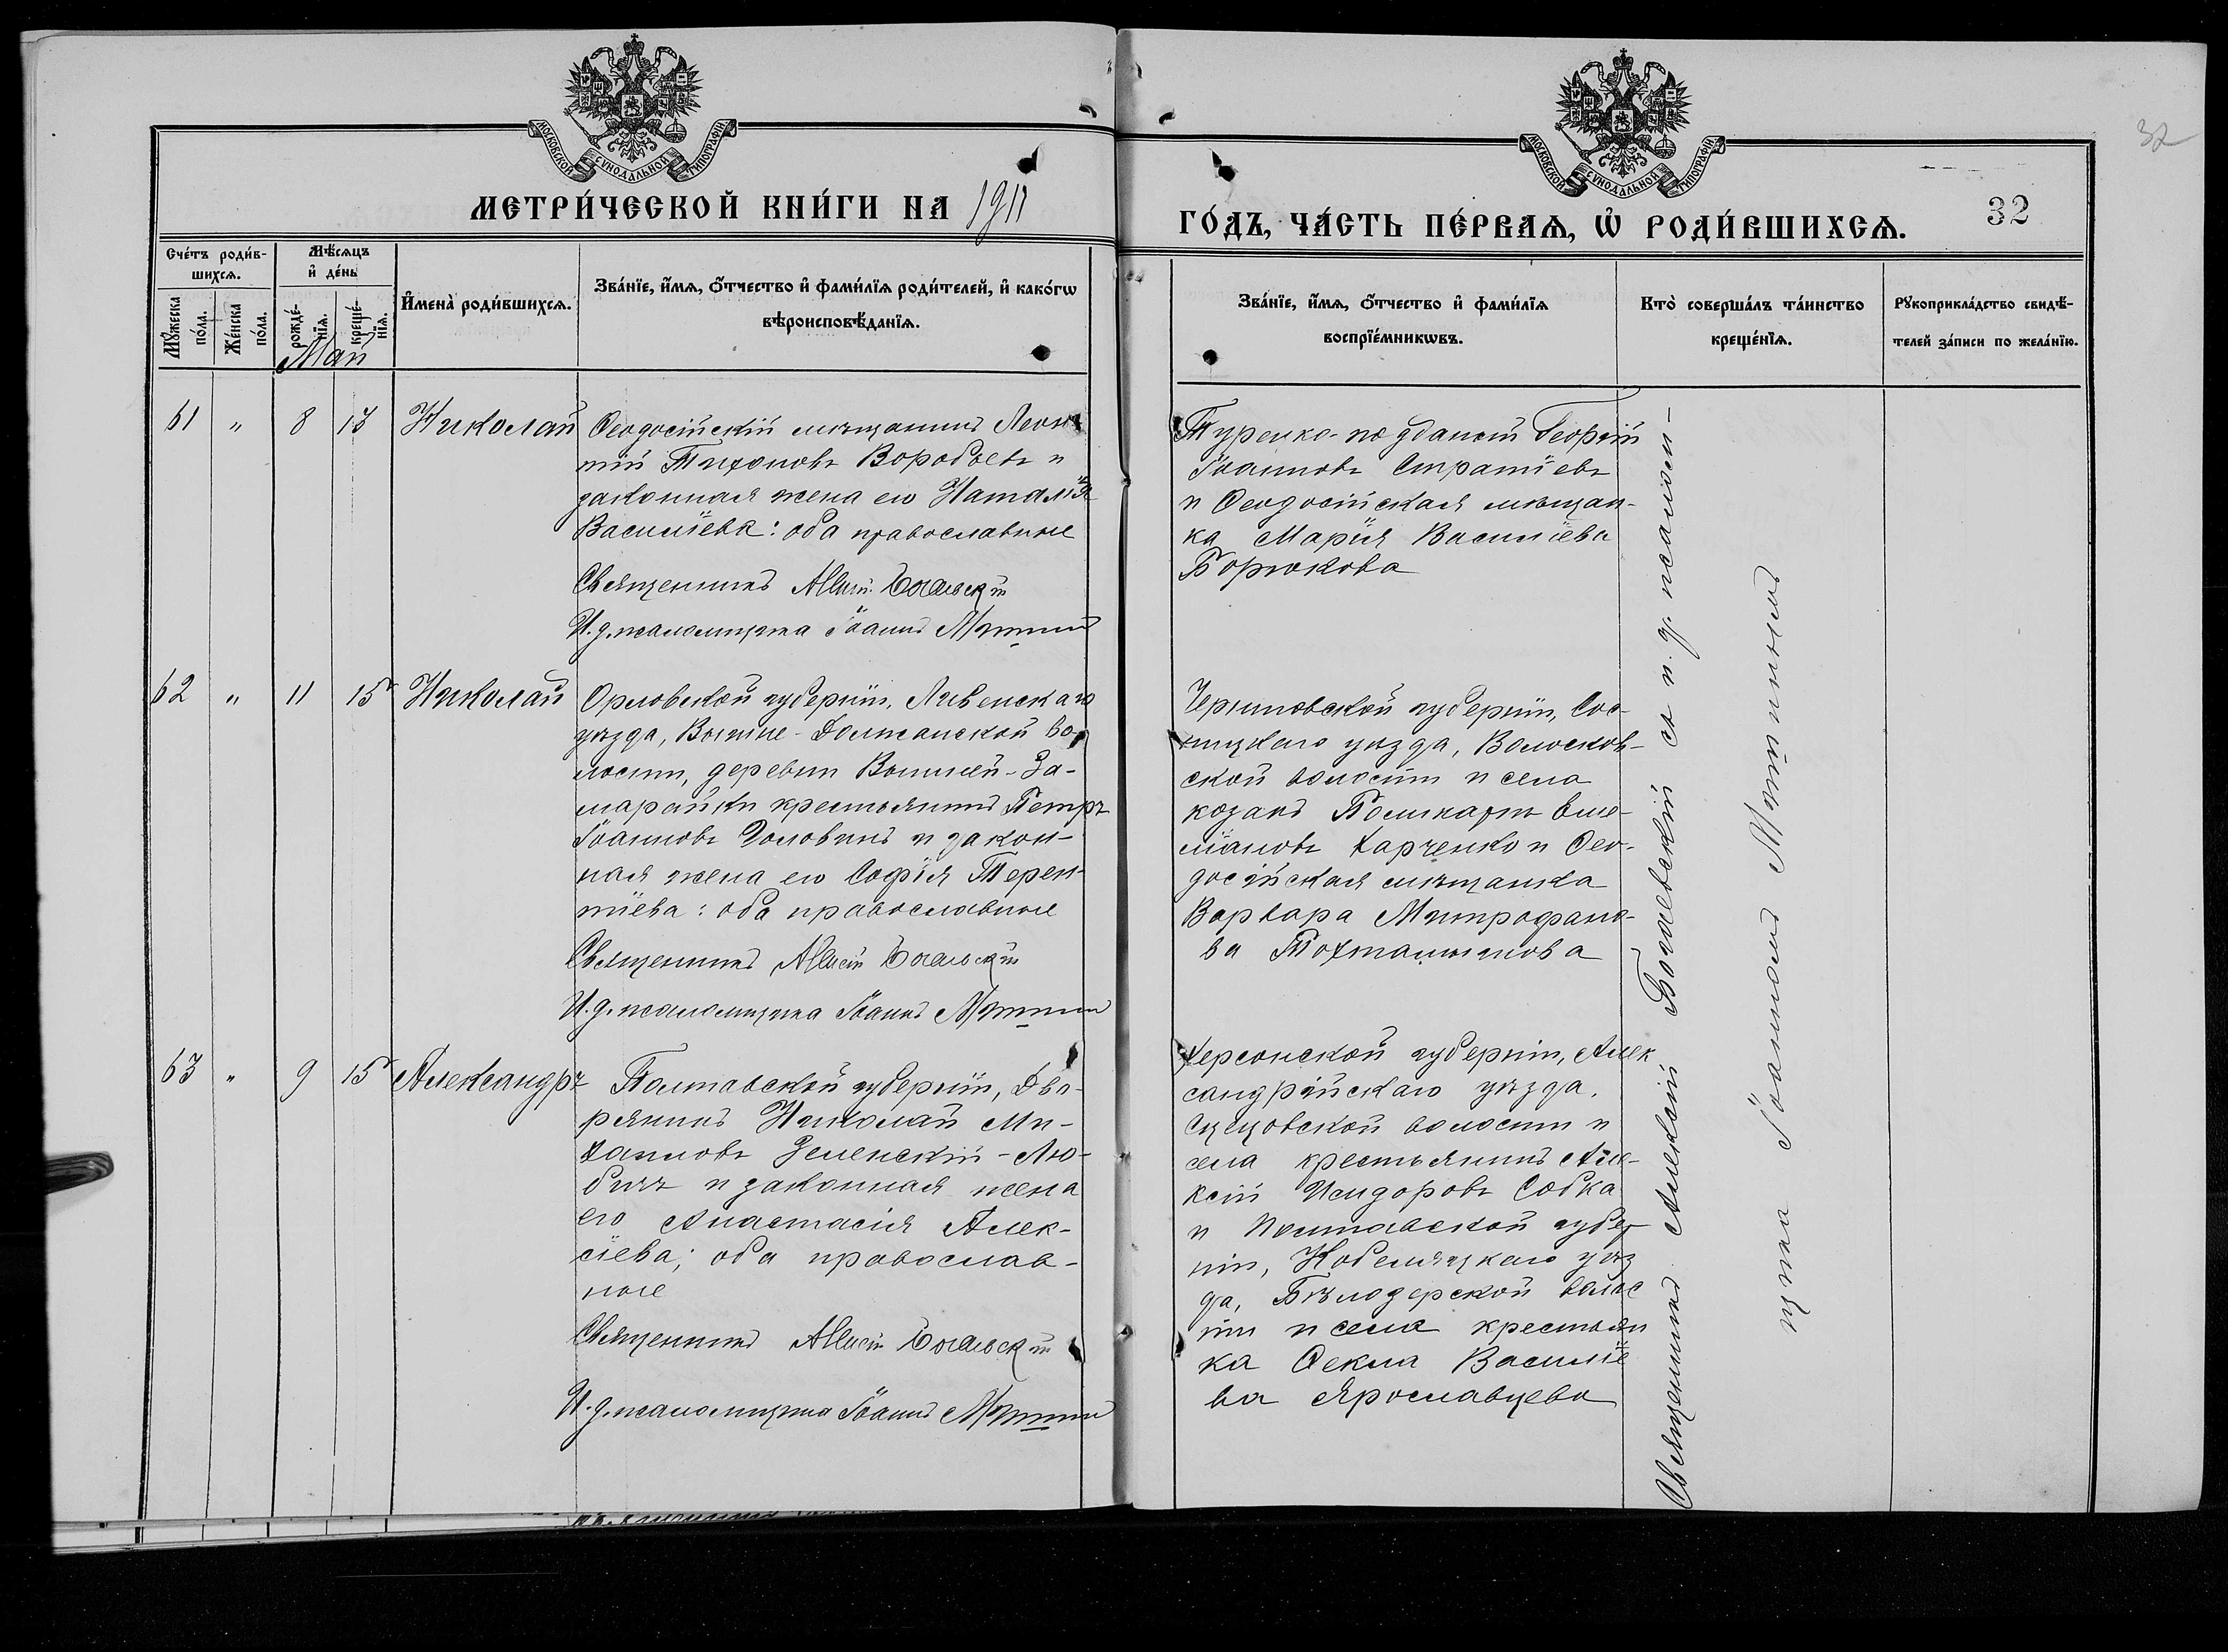 МОСКОВСКОЙ СѴНОДАЛЬНОЙ ТИПОГРАФІИ
МОСКОВСКОЙ СѴНОДАЛЬНОЙ ТИПОГРАФІИ
32
МЕТРИ́ЧЕСКОЙ КНИ́ГИ НА 1911
ГО́ДЪ, ЧА́СТЬ ПЕ́РВАѦ, Ѡ҆ РОДИ́ВШИХСѦ.
32
Сче́тъ роди́в-
шихсѧ.
Мꙋ́жеска
по́ла.
Же́нска
по́ла.
Мѣ́сѧцъ
и҆ де́нь
рожде́-
нїѧ.
креще́-
нїѧ.
Май
И҆мена̀ роди́вшихсѧ.
Зва́нїе, и҆́мѧ, ѻ҆́тчество и҆ фами́лїѧ роди́телей, и҆ како́гѡ
вѣроисповѣ́данїѧ.
Зва́нїе, и҆́мѧ, ѻ҆́тчество и҆ фами́лїѧ
воспрїе́мникѡвъ.
Кто̀ соверша́лъ та́инство
креще́нїѧ.
Рꙋкоприкла́дство свидѣ́-
телей за́писи по жела́нїю.
61 " 8 13 Николай
Ѳеодосійскій мѣщанинъ Леон-
тій Тихоновъ Воробьевъ и
законная жена его Наталія
Василіева: оба православные
Священникъ Алексій Богаевскій
И. д. псаломщика Іоаннъ
Турецко-подданый Георгій
Іоанновъ Стратіевъ
и Ѳеодосійская мѣщан-
ка Марія Василіева
Борюкова
62 " 11 15 Николай
Орловской губерніи, Ливенскаго
уѣзда, Вышне-Должанской во-
лости, деревни Вышней-За-
марайки крестьянинъ Петръ
Іоанновъ Головинъ и закон-
ная жена его Софія Терен-
тіева: оба православные
Священникъ Алексій Богаевскій
И. д. псаломщика Іоаннъ
Черниговской губерніи, Сос-
ницкаго уѣзда, Волосков-
ской волости и села
козакъ Поликарпъ Еме-
ліановъ Харченко и Ѳео-
досійская мѣщанка
Варвара Митрофано-
ва Тохтамышова
63 " 9 15 Александръ
Полтавской губерніи, Дво-
рянинъ Николай Ми-
хаиловъ Зеленскій-Лю-
бичъ и законная жена
его Анастасія Алек-
сіева; оба православ-
ные
Священникъ Алексій Богаевскій
И. д. псаломщика Іоаннъ
Херсонской губерніи, Алек
сандрійскаго уѣзда,
волости и
села крестьянинъ Але-
ксій Исидоровъ Собка
и Полтавской губер
ніи, Кобелякскаго уѣз
да, Бѣлодерской волос
ти и села крестьян
ка Ѳекла Василіе
ва Ярославцева
Священникъ Алексій Богаевскій съ и. д. псалом-
щика Іоанномъ